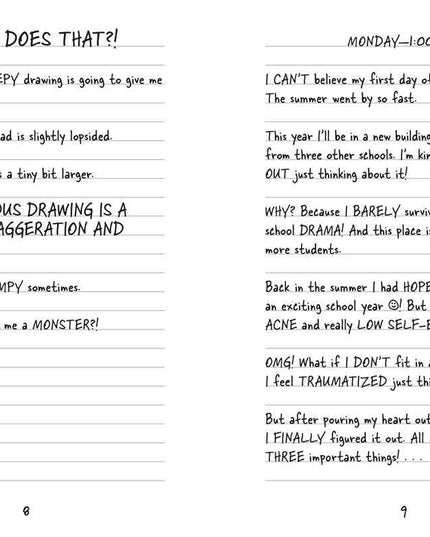 DOES THAT?!
EPY drawing is going to give me
ad is slightly lopsided.
s a tiny bit larger.
OUS DRAWING IS A
AGGERATION AND
MPY sometimes.
me a MONSTER?!
8
MONDAY—1:00
I CAN'T believe my first day of
The summer went by so fast.
This year I'll be in a new building
from three other schools. I'm kin
OUT just thinking about it!
WHY? Because I BARELY surviv
school DRAMA! And this place is
more students.
Back in the summer I had HOPE
an exciting school year ☺! But
ACNE and really LOW SELF-E
OMG! What if I DON'T fit in a
I feel TRAUMATIZED just thi
But after pouring my heart out
I FINALLY figured it out. All
THREE important things! . . .
9